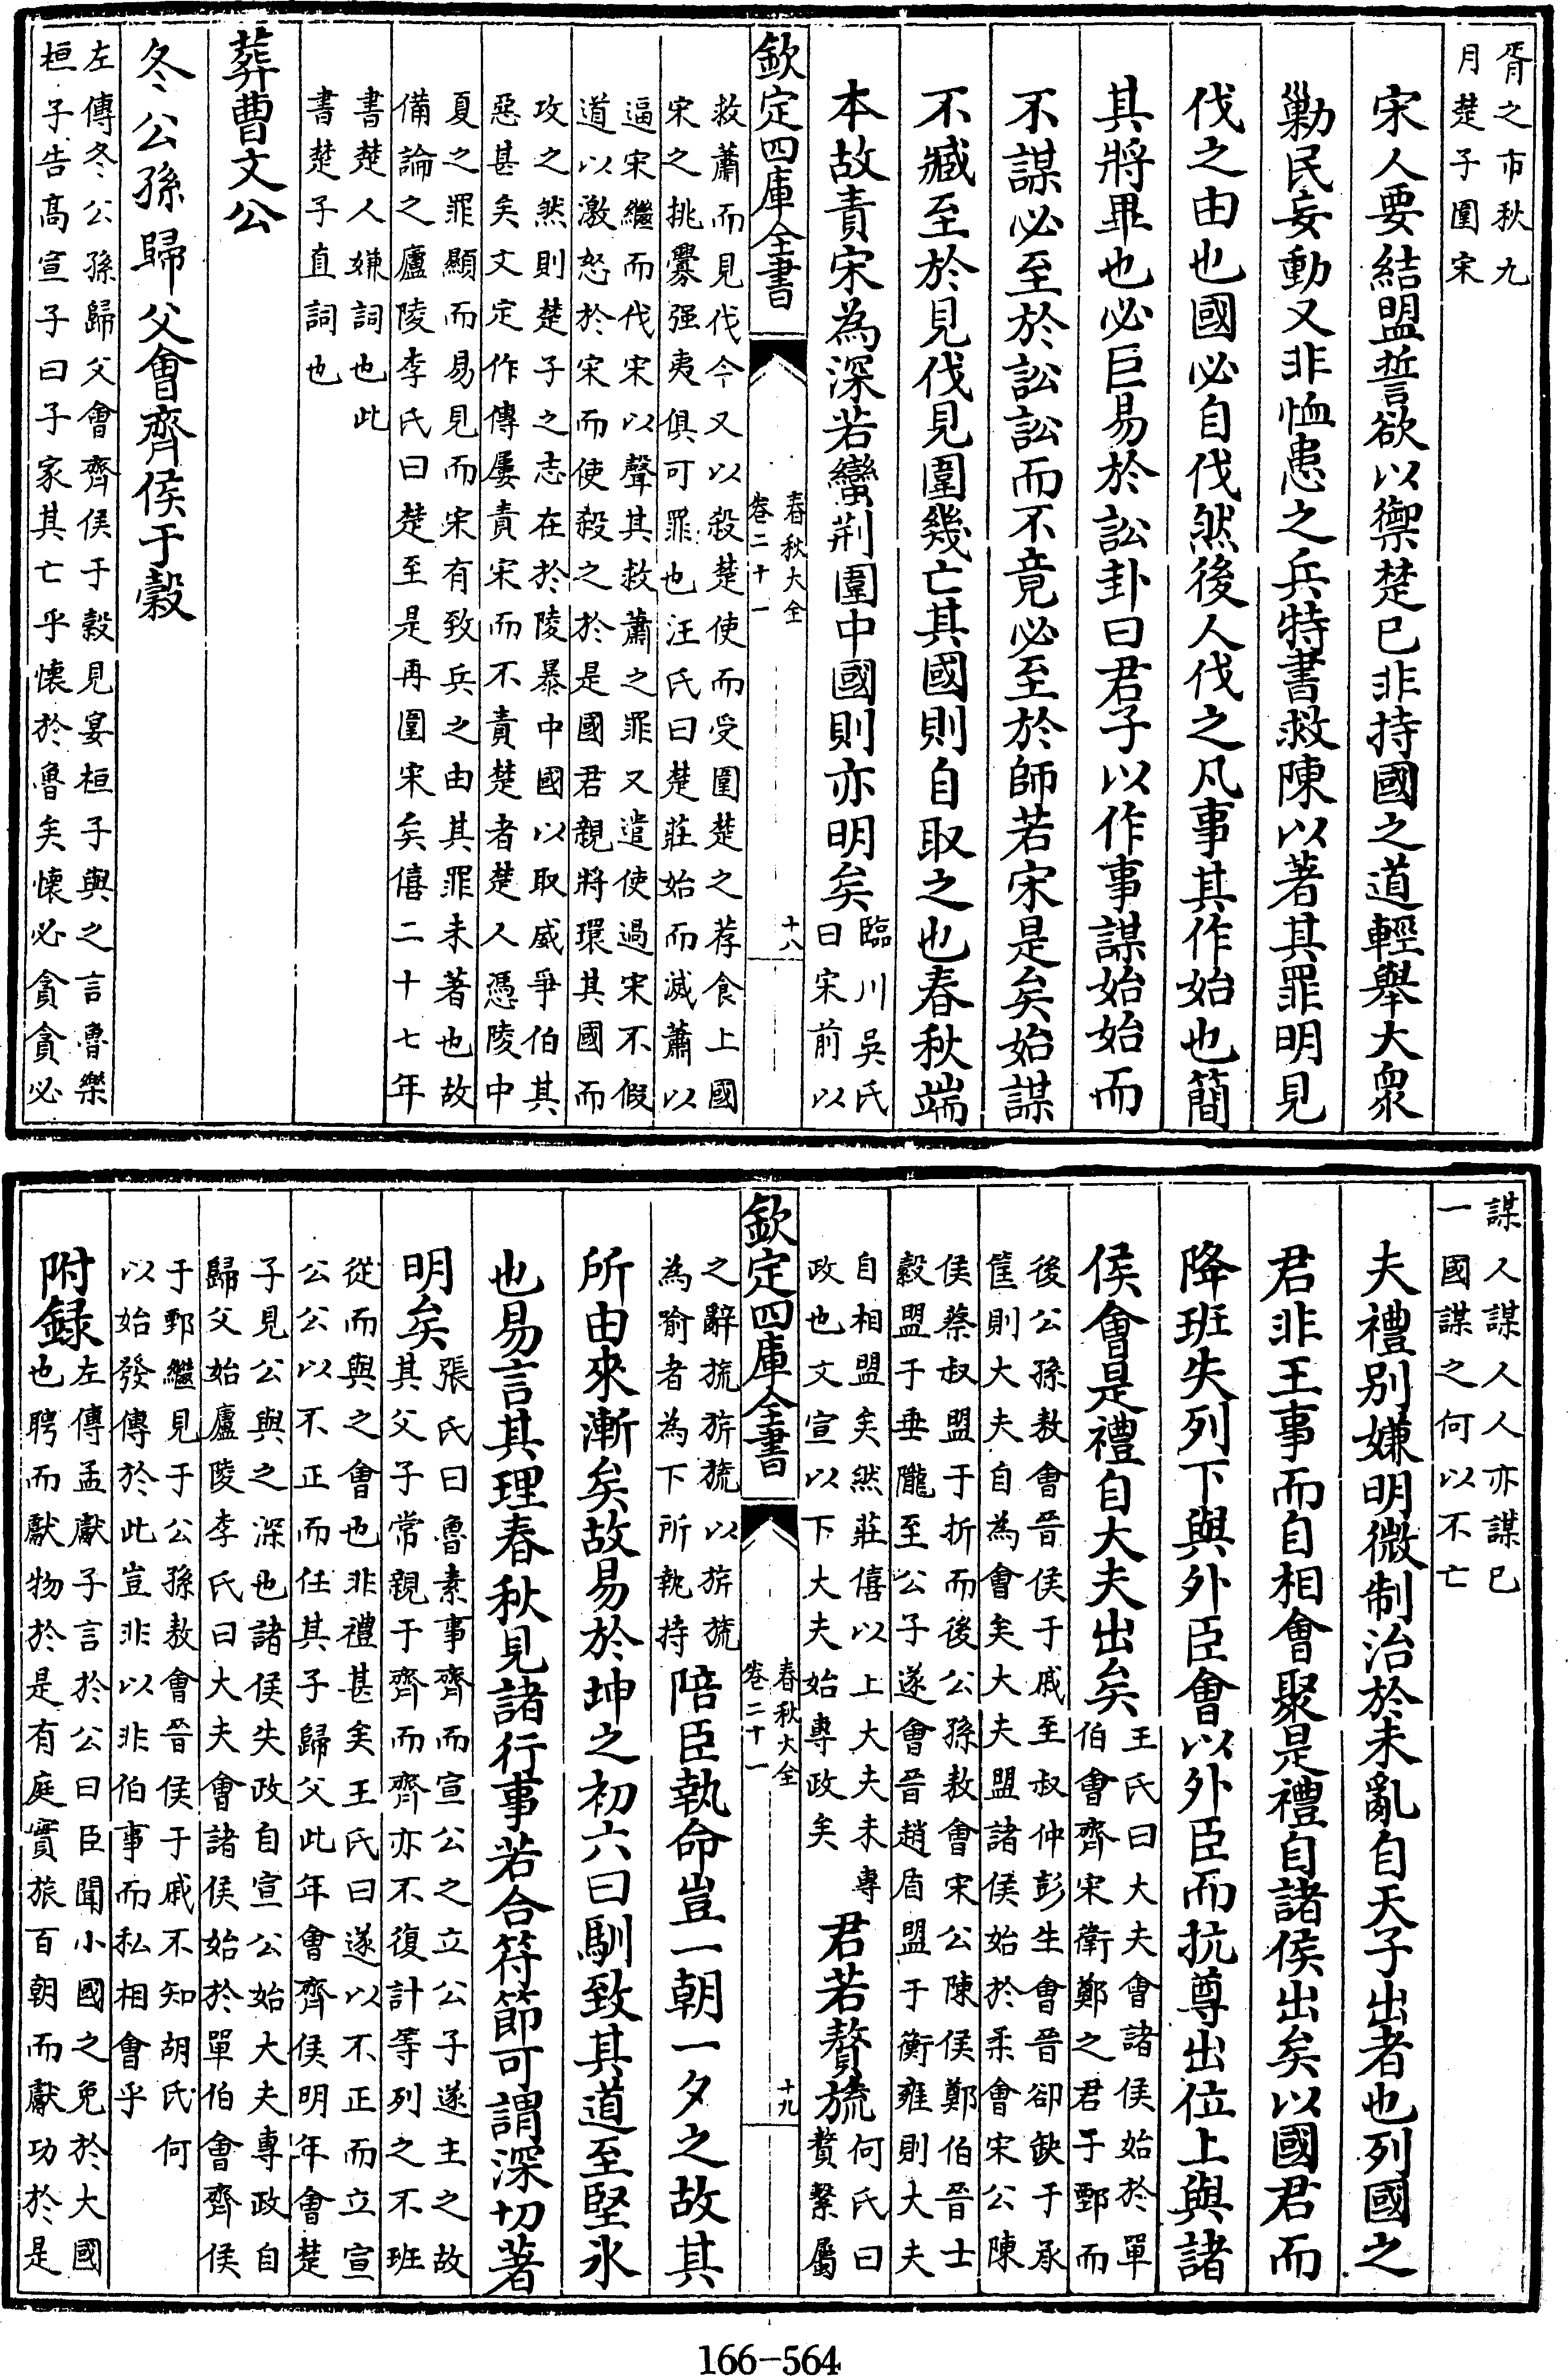 胥之市秋九
月楚子圍宋
宋人要結盟誓欲以禦楚已非持國之道輕舉大衆
勦民妄動又非恤患之兵特書救陳以著其罪明見
伐之由也國必自伐然後人伐之凡事其作始也簡
其將畢也必巨易於訟卦曰君子以作事謀始始而
不謀必至於訟訟而不竟必至於師若宋是矣始謀
不臧至於見伐見圍幾亡其國則自取之也春秋端
本故責宋為深若蠻荆圍中國則亦明矣
臨川吳氏
曰宋前以
欽定四庫全書
春秋大全
卷二十一
十八
救蕭而見伐今又以殺楚使而受圍楚之荐食上國
宋之挑釁强夷俱可罪也汪氏曰楚莊始而滅蕭以
逼宋繼而伐宋以聲其救蕭之罪又遣使過宋不假
道以激怒於宋而使殺之於是國君親將環其國而
攻之然則楚子之志在於陵暴中國以取威爭伯其
惡甚矣文定作傳屢責宋而不責楚者楚人憑陵中
夏之罪顯而易見而宋有致兵之由其罪未著也故
備論之廬陵李氏曰楚至是再圍宋矣僖二十七年
書楚人嫌詞也此
書楚子直詞也
葬曹文公
冬公孫歸父會齊侯于穀
左傳冬公孫歸父會齊侯于穀見宴桓子與之言魯樂
桓子告高宣子曰子家其亡乎懷於魯矣懷必貪貪必
謀人謀人人亦謀已
一國謀之何以不亡
夫禮别嫌明微制治於未亂自天子出者也列國之
君非王事而自相會聚是禮自諸侯出矣以國君而
降班失列下與外臣會以外臣而抗尊出位上與諸
侯會是禮自大夫出矣
王氏曰大夫會諸侯始於單
伯會齊宋衛鄭之君于鄄而
後公孫敖會晉侯于戚至叔仲彭生會晉郤缺于承
筐則大夫自為會矣大夫盟諸侯始於柔會宋公陳
侯蔡叔盟于折而後公孫敖會宋公陳侯鄭伯晉士
縠盟于垂隴至公子遂會晉趙盾盟于衡雍則大夫
自相盟矣然莊僖以上大夫未專
政也文宣以下大夫始專政矣
君若贅旒
何氏曰
贅繫屬
欽定四庫全書
春秋大全
卷二十一
十九
之辭旒旂旒以旂旒
為喻者為下所執持
陪臣執命豈一朝一夕之故其
所由來漸矣故易於坤之初六曰馴致其道至堅氷
也易言其理春秋見諸行事若合符節可謂深切著
明矣
張氏曰魯素事齊而宣公之立公子遂主之故
其父子常親于齊而齊亦不復計等列之不班
從而與之會也非禮甚矣王氏曰遂以不正而立宣
公公以不正而任其子歸父此年會齊侯明年會楚
子見公與之深也諸侯失政自宣公始大夫專政自
歸父始廬陵李氏曰大夫會諸侯始於單伯會齊侯
于鄄繼見于公孫敖會晉侯于戚不知胡氏何
以始發傳於此豈非以非伯事而私相會乎
附錄
左傳孟獻子言於公曰臣聞小國之免於大國
也聘而獻物於是有庭實旅百朝而獻功於是
166-564